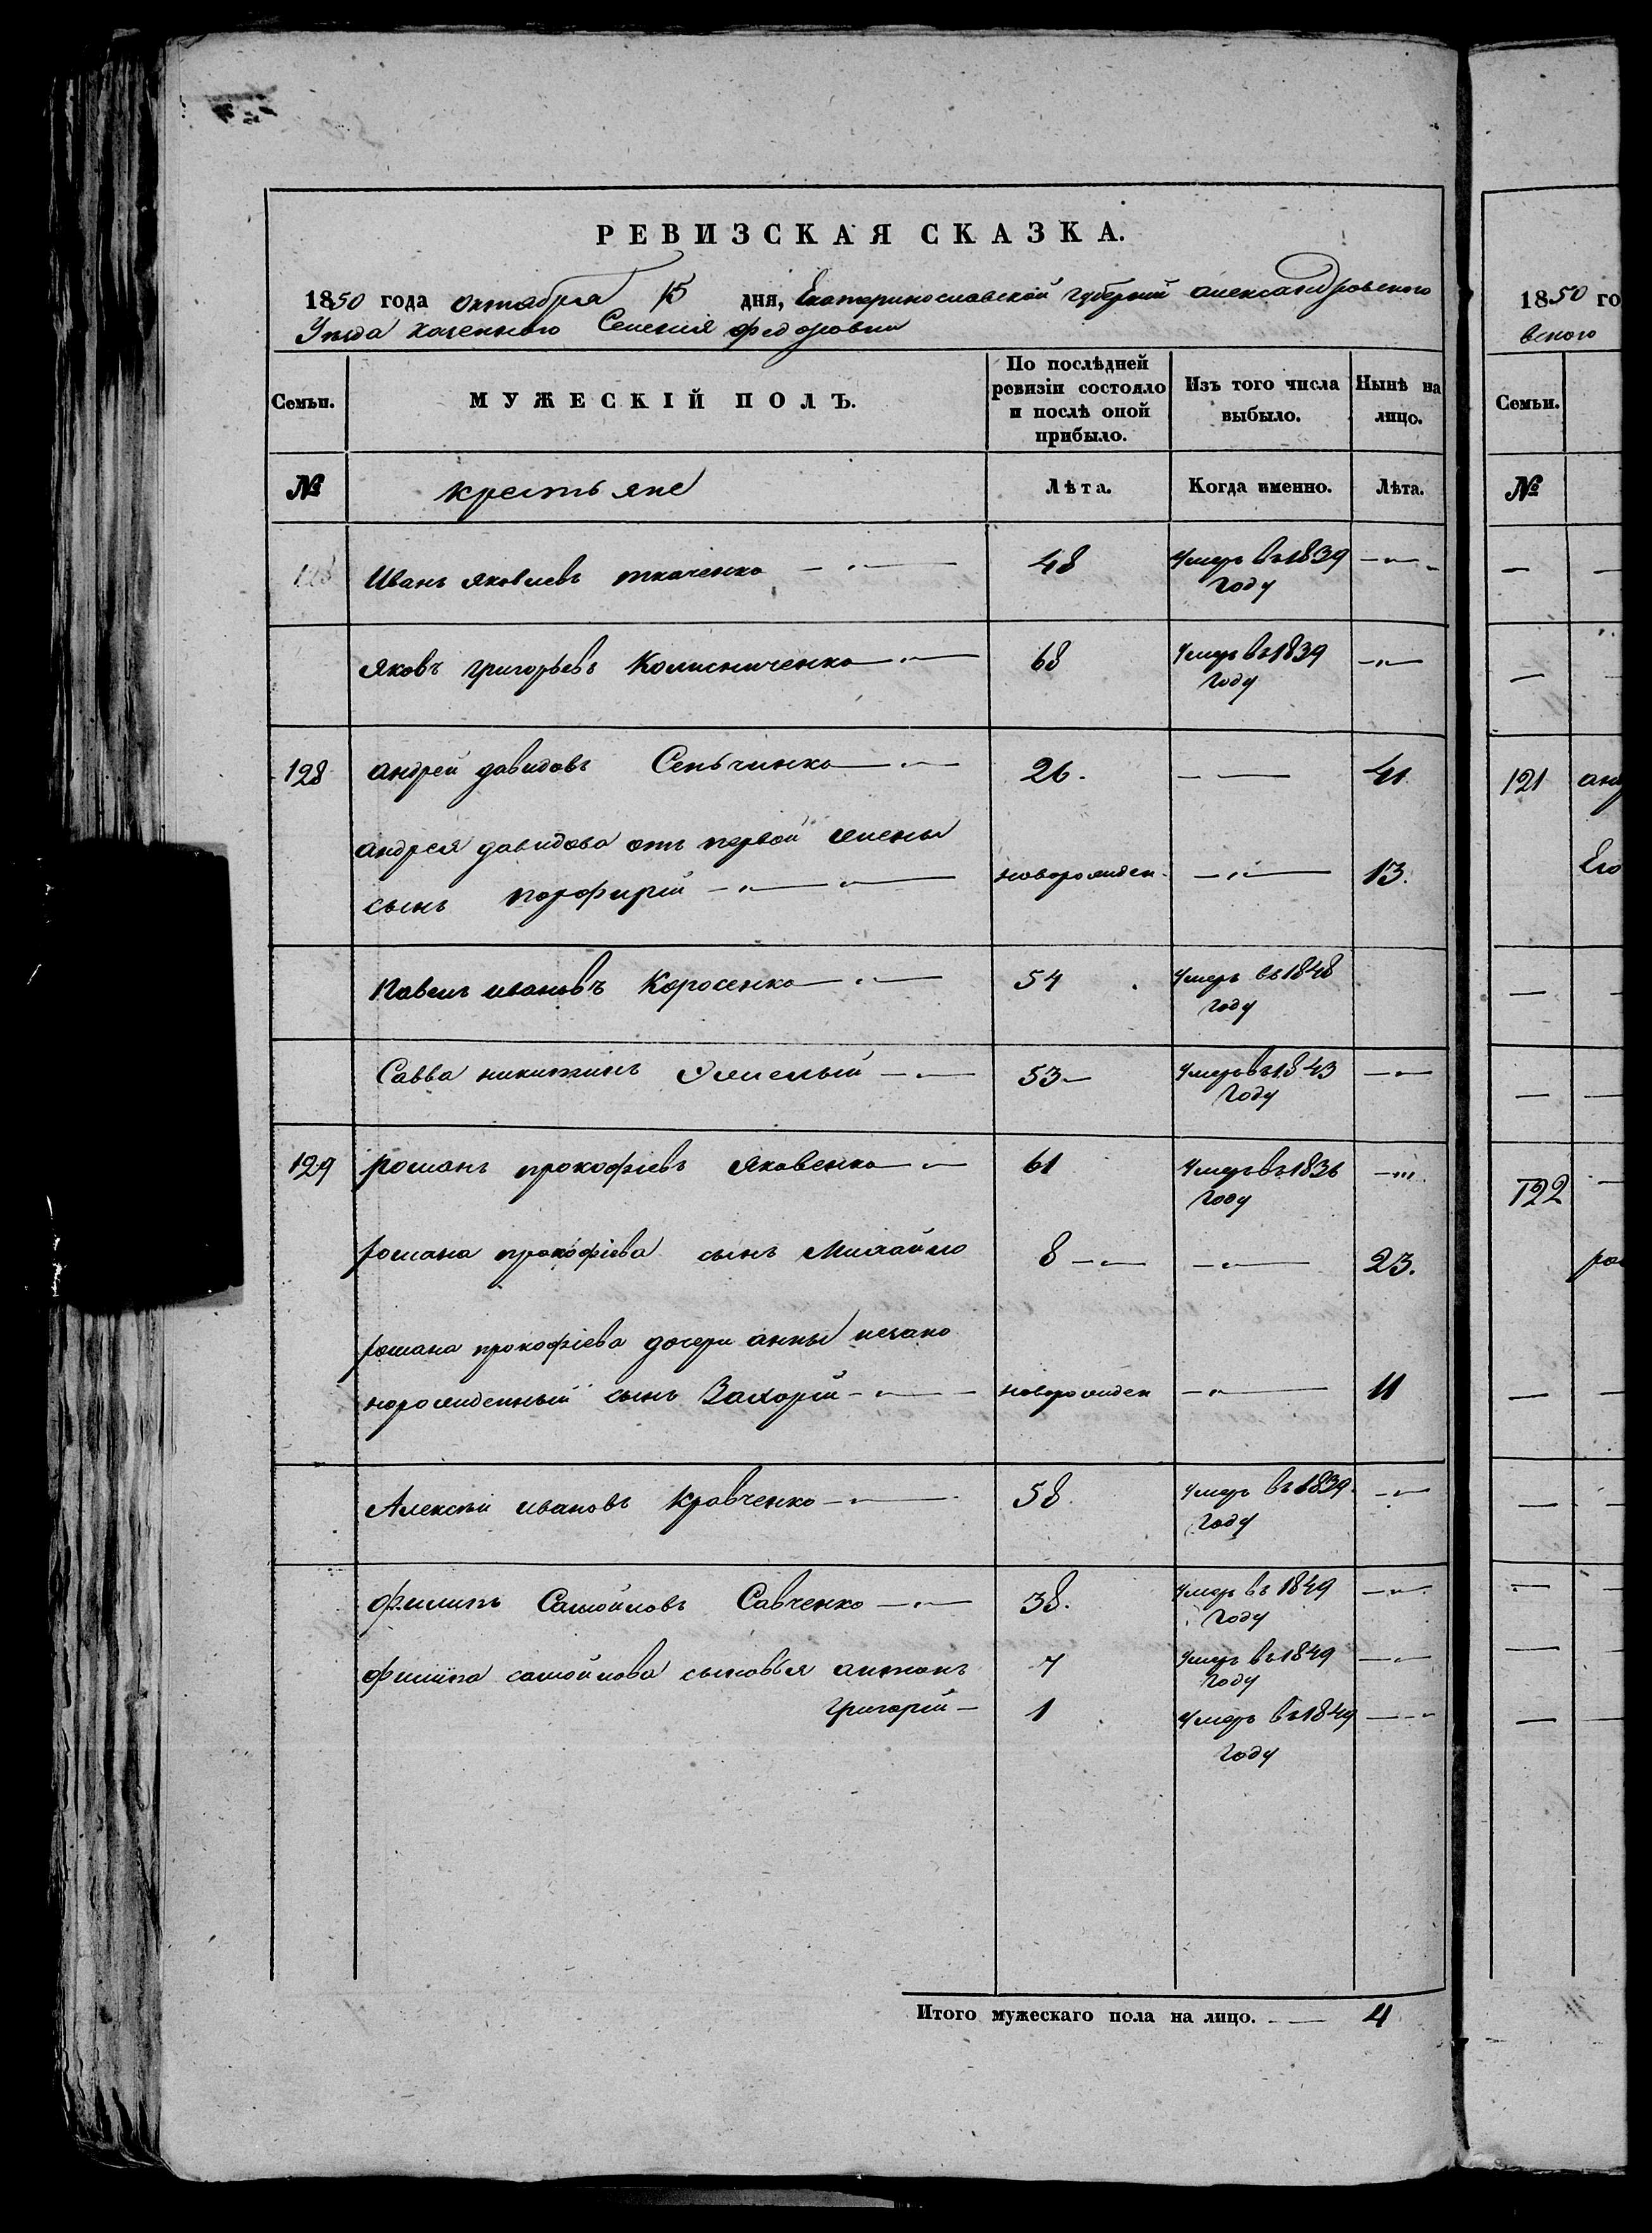 РЕВИЗСКАЯ СКАЗКА.
1850 года октября 15 дня, Екатеринославской губерній александровского
Уезда казенного Селенія федоровки
Семьи. МУЖЕСКІЙ ПОЛЪ. По послѣдней ревизіи состояло и послѣ оной прибыло. Изъ того числа выбыло. Нынѣ на лицо.
№ крестьяне Лѣта. Когда именно. Лѣта.
Иванъ яковлевъ ткаченко 48 Умеръ въ 1839 году
яковъ григорьевъ Колисниченко 68 Умеръ въ 1839 году
128 андрей давидовъ Сеньчинко 26. 41.
андрея давидова отъ первой жены
сынъ порфирій новорожден. 13.
Павелъ ивановъ Коросенко 54 Умеръ въ 1848 году
Савва никитинъ 53 Умеръ въ 1843 году
129 романъ прокофіевъ яковенко 61 Умеръ въ 1836 году
романа прокофіева сынъ Михайло 8 23.
романа прокофіева дочери анны незако
норожденный сынъ Захорій новорожден 11
Алексѣй ивановъ кравченко 58. Умеръ въ 1839 году
филипъ Самойловъ Савченко 38. Умеръ въ 1849 году
филипа самойлова сыновья антонъ 7 Умеръ въ 1849 году
григорій 1 Умеръ въ 1849 году
Итого мужескаго пола на лицо. 4
1850 го
вского
Семьи.
№
121 анд
Его
122
ром